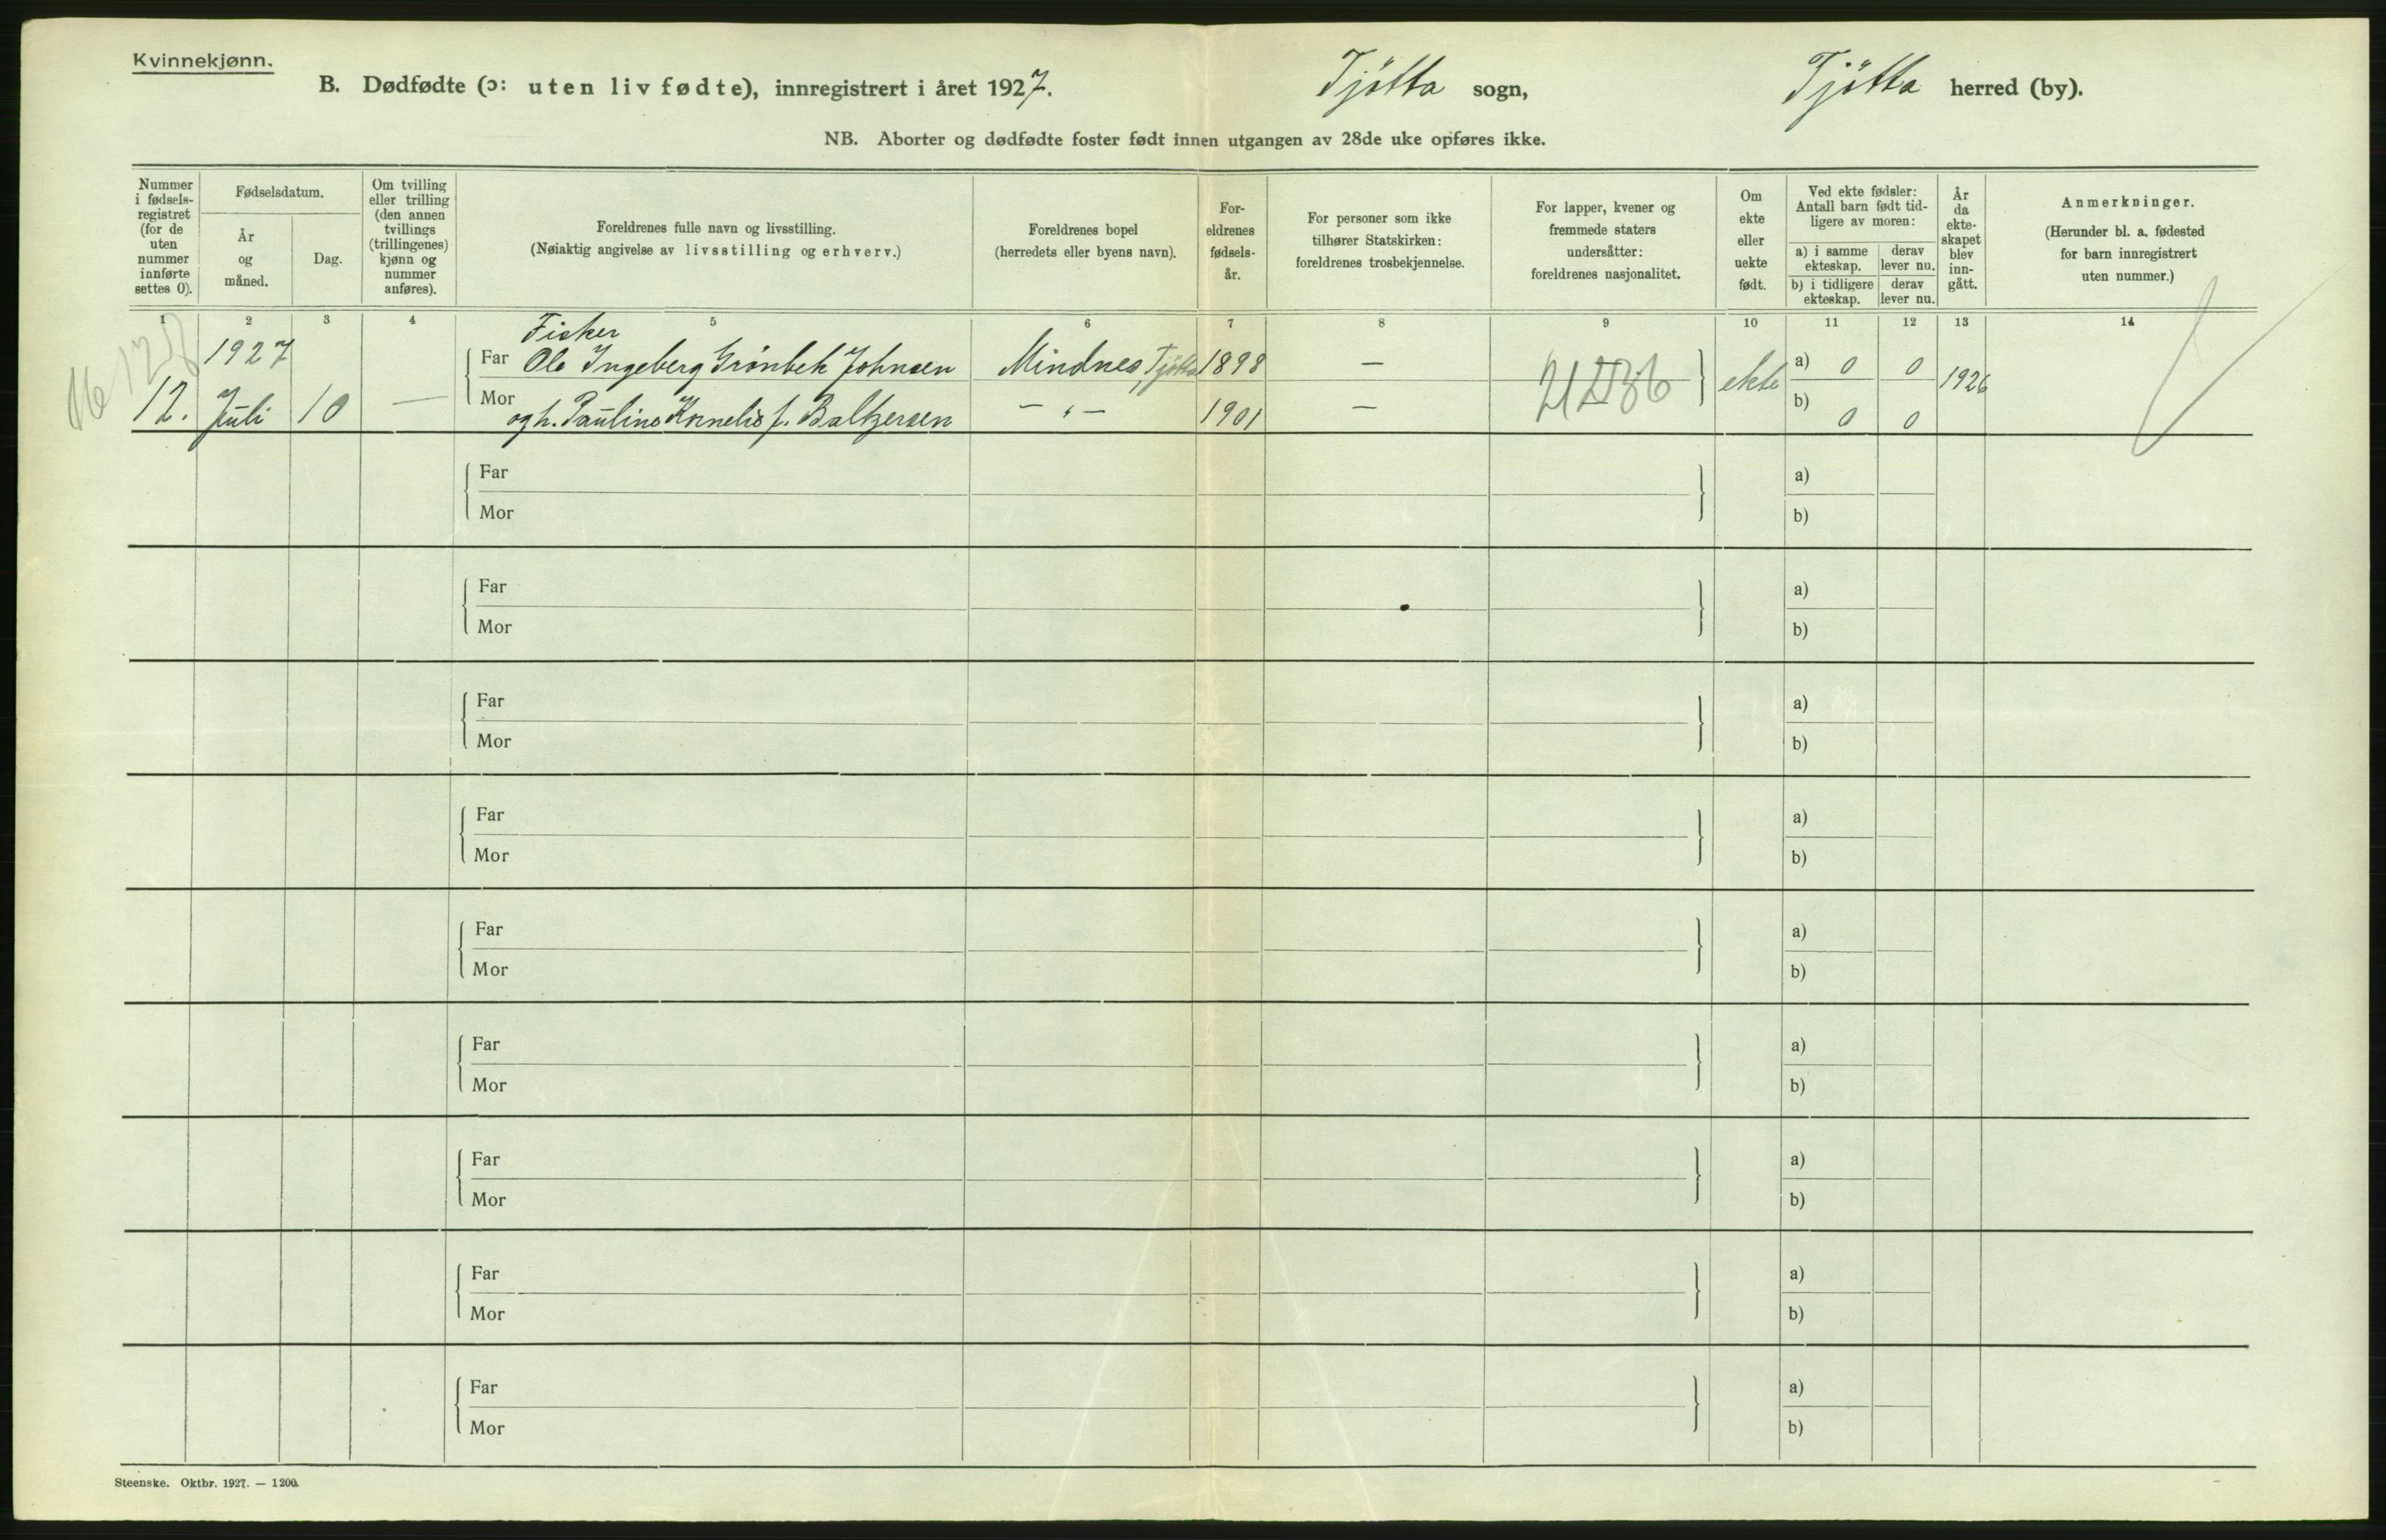 Kvinnekjønn.
B. Dødfødte (ɔ: uten liv fødte), innregistrert i året 1927. Tjötta sogn, Tjötta herred (by).
NB. Aborter og dødfødte foster født innen utgangen av 28de uke opføres ikke.
Nummer
i fødsels-
registret
(for de
uten
nummer
innførte
settes 0).
Fødselsdatum.
År
og
måned.
Dag.
Om tvilling
eller trilling
(den annen
tvillings
(trillingenes)
kjønn og
nummer
anføres).
Foreldrenes fulle navn og livsstilling.
(Nøiaktig angivelse av livsstilling og erhverv.)
Foreldrenes bopel
(herredets eller byens navn).
For-
eldrenes
fødsels-
år.
For personer som ikke
tilhører Statskirken:
foreldrenes trosbekjennelse.
For lapper, kvener og
fremmede staters
undersåtter:
foreldrenes nasjonalitet.
Om
ekte
eller
uekte
født.
Ved ekte fødsler:
Antall barn født tid-
ligere av moren:
a) i samme
ekteskap.
derav
lever nu.
b) i tidligere
ekteskap.
derav
lever nu.
År
da
ekte-
skapet
blev
inn-
gått.
Anmerkninger.
(Herunder bl. a. fødested
for barn innregistrert
uten nummer.)
1 2 3 4 5 6 7 8 9 10 11 12 13 14
Fisker
1927 Far Ole Ingeberg Grönbek Johnsen Mindnes, Tjötta 1898 — ekte a) 0 0 1926
12. Juli 10 — Mor og h. Pauline Kornelie f. Baltzersen — " — 1901 — b) 0 0
Far a)
Mor b)
Far a)
Mor b)
Far a)
Mor b)
Far a)
Mor b)
Far a)
Mor b)
Far a)
Mor b)
Far a)
Mor b)
Far a)
Mor b)
Far a)
Mor b)
Steenske. Oktbr. 1927. — 1200.